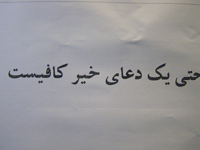 حتی یک دعای خیر کافیست